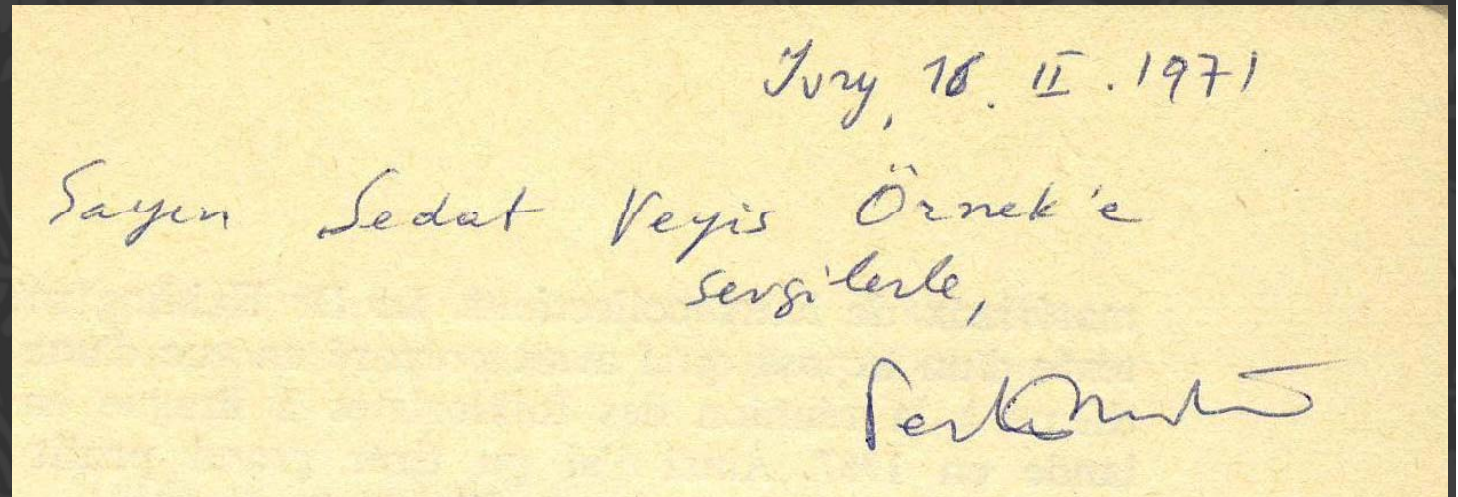 Ivry, 18. II. 1971
Sayın Sedat Veyis Örnek'e
sevgilerle,